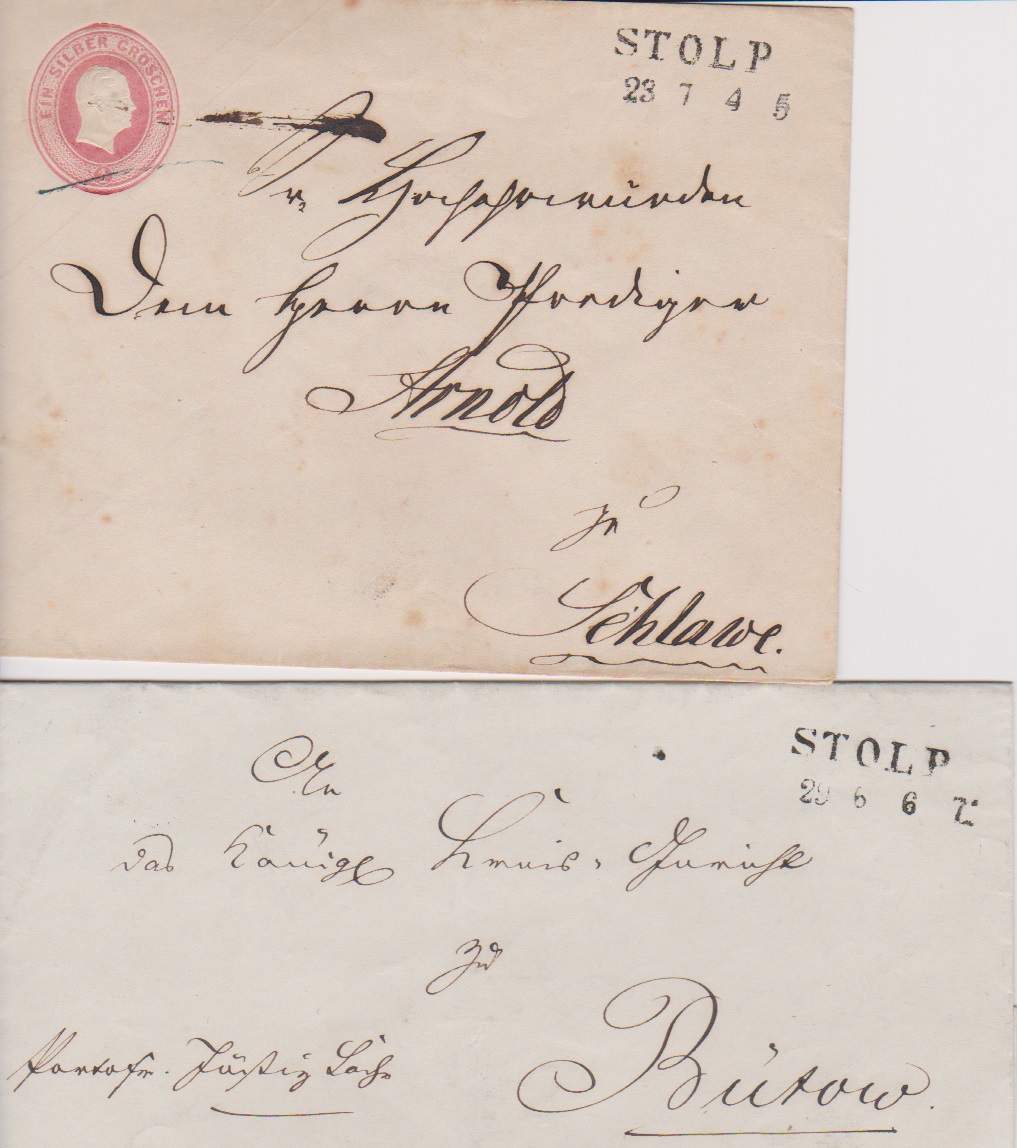 EIN SILBER GROSCHEN
STOLP
23 7 4 5
Sr. Hochehrwürden
Dem Herrn Prediger
Arnold
zu
Schlawe.
STOLP
29 6 6 7
An
das Königl Kreis-Gericht
zu
Bütow.
Portofr. Justiz Sache